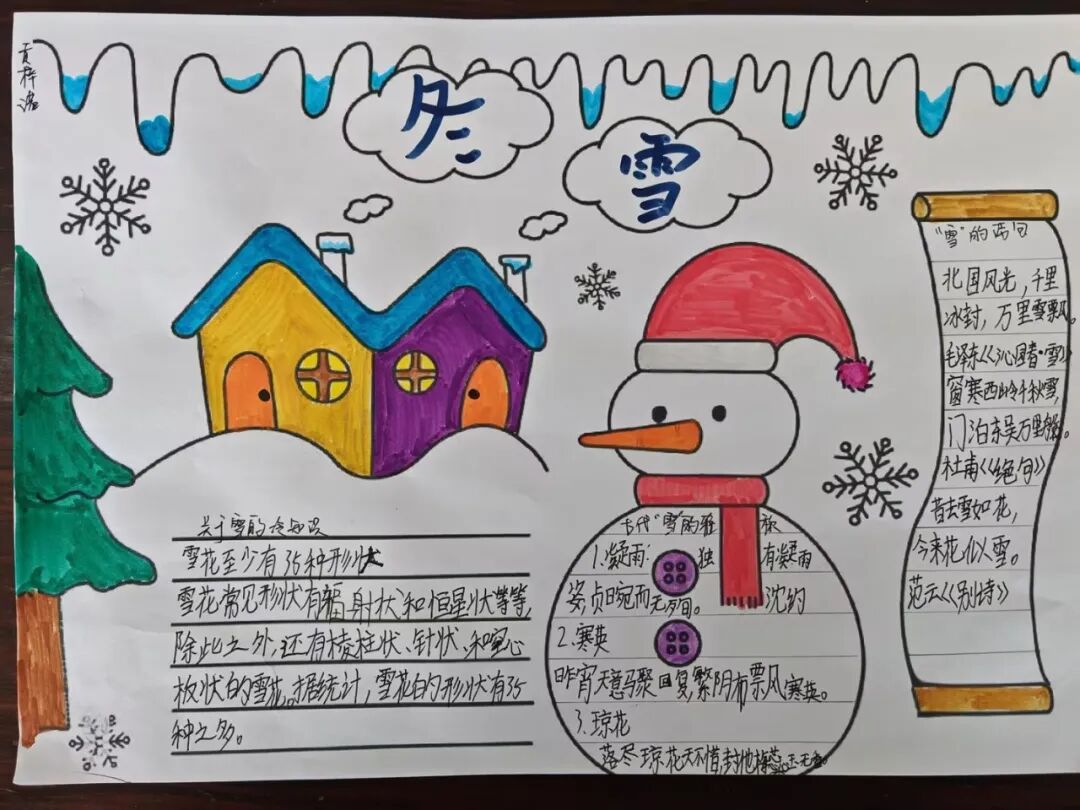 冬
雪
关于雪的冷知识
雪花至少有35种形状
雪花常见形状有辐射状和恒星状等等,
除此之外,还有棱柱状、针状、和空心
板状的雪花。据统计,雪花的形状有35
种之多。
古代“雪”的雅称
1.凝雨: 独有凝雨
姿,贞晼而无殉。沈约
2.寒英
昨宵天意骤回复,繁阴布飘风寒英。
3.琼花
落尽琼花天不惜,封他梅蕊玉无香。
“雪”的诗句
北国风光,千里
冰封,万里雪飘。
毛泽东《沁园春·雪》
窗寒西岭千秋雪,
门泊东吴万里船。
杜甫《绝句》
昔去雪如花,
今来花似雪。
范云《别诗》